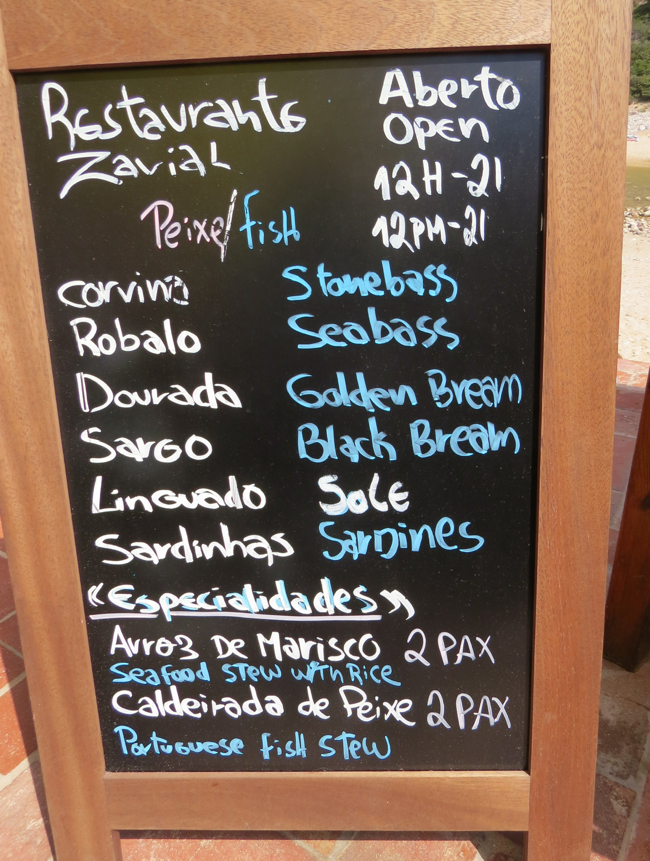 Restaurante
Zavial
Aberto
Open
12H-21
12PM-21
Peixe/fish
corvina Stonebass
Robalo Seabass
Dourada Golden Bream
Sargo Black Bream
Linguado Sole
Sardinhas Sardines
"Especialidades"
Arroz De Marisco 2 PAX
Seafood stew with Rice
Caldeirada de Peixe 2 PAX
Portuguese fish stew